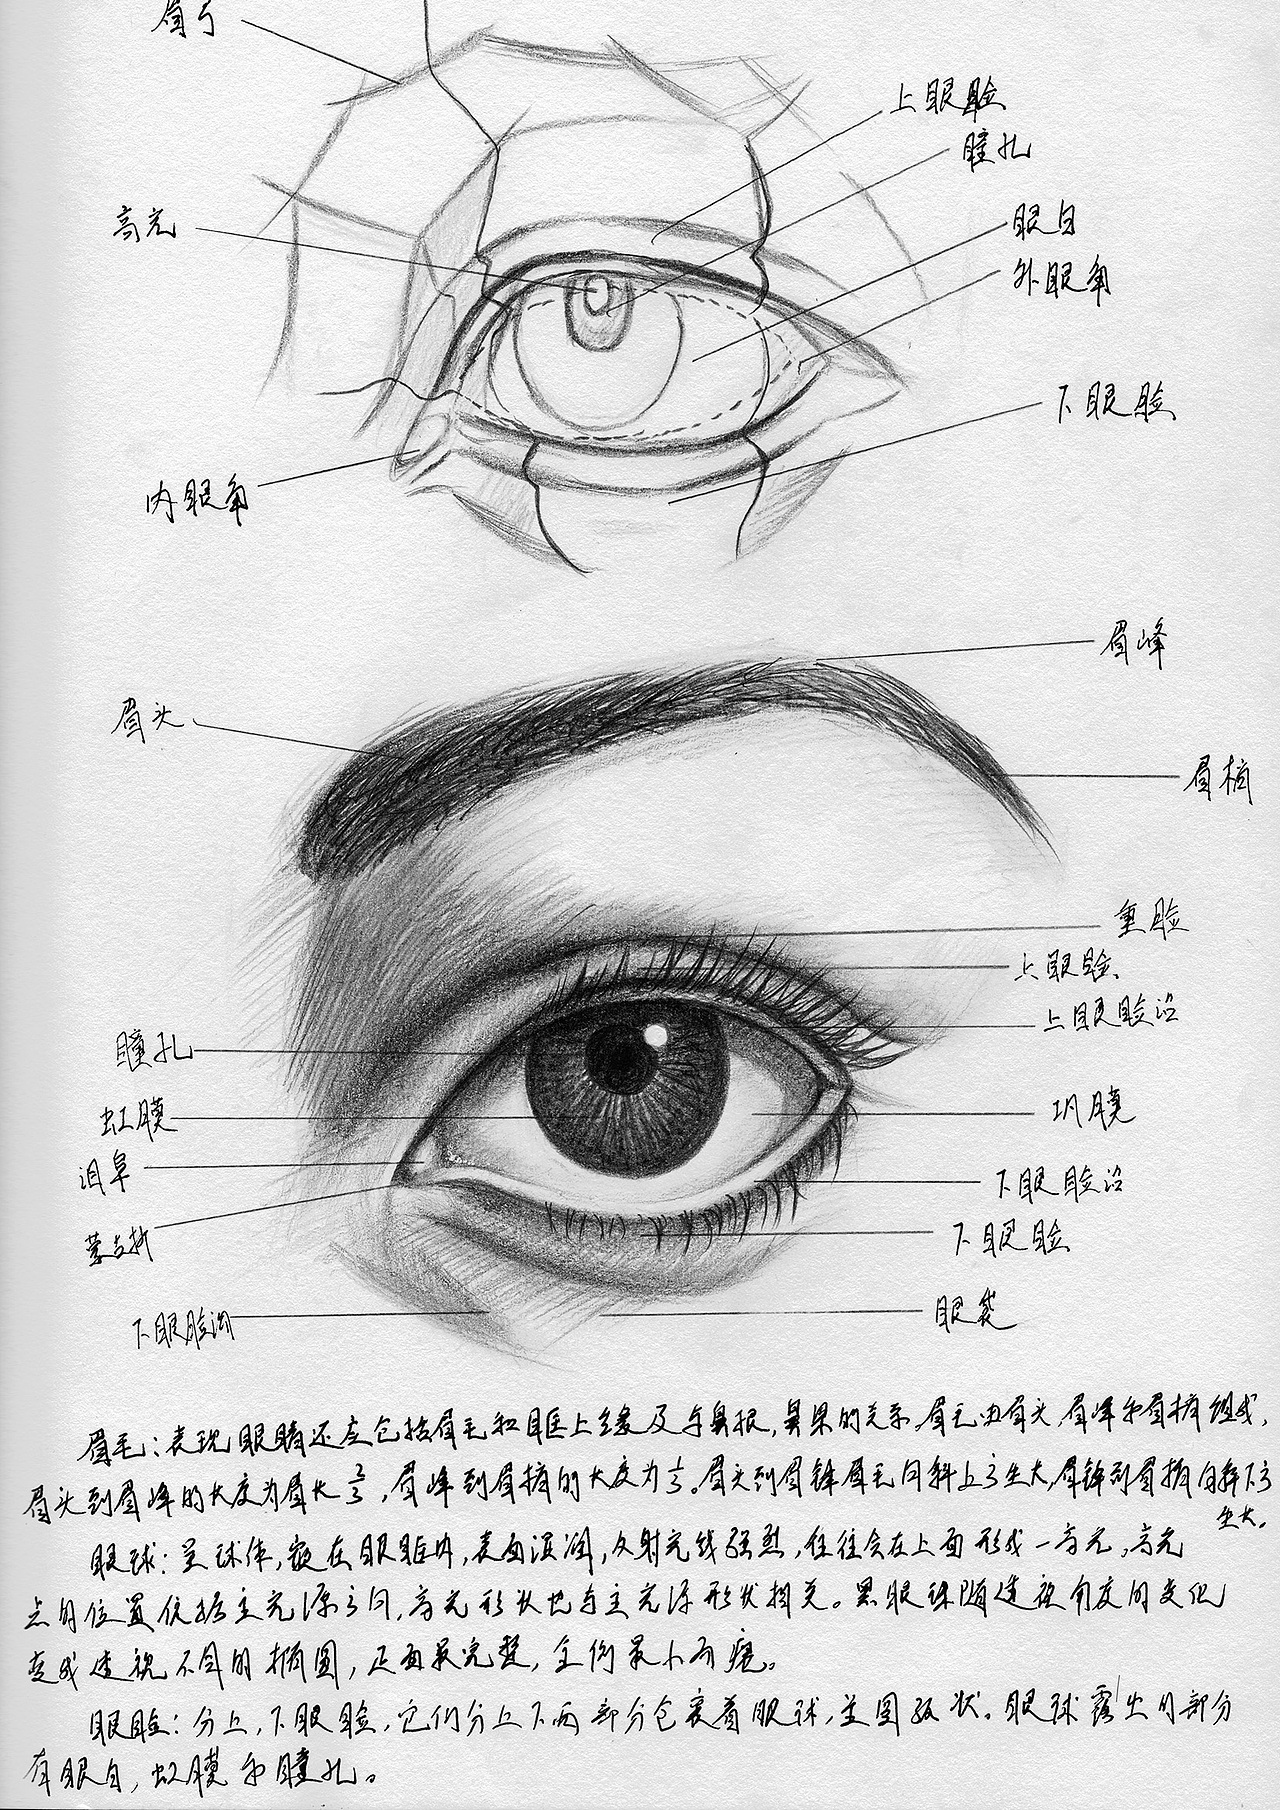 眉弓
上眼睑
瞳孔
高光
眼白
外眼角
下眼睑
内眼角
眉峰
眉头
眉梢
重睑
上眼睑
上眼睑沿
瞳孔
虹膜
巩膜
泪阜
下眼睑沿
下眼睑
下眼睑沟
眼袋
眉毛：表现眼睛还应包括眉毛和眶上缘及与鼻根，鼻梁的关系。眉毛由眉头，眉峰和眉梢组成，
眉头到眉峰的长度为眉长2/3，眉峰到眉梢的长度为1/3。眉头到眉锋眉毛向斜上方生长，眉锋到眉梢向斜下方
生长。
眼球：呈球体，嵌在眼眶内，表面湿润，反射光线强烈，往往会在上面形成一高光，高光
点的位置依据主光源方向，高光形状也与主光源形状相关。黑眼球随透视角度的变化
变成透视不同的椭圆，正面最完整，全侧最小而瘪。
眼睑：分上，下眼睑，它们分上下两部分包裹着眼球，呈圆弧状。眼球露出的部分
有眼白，虹膜和瞳孔。